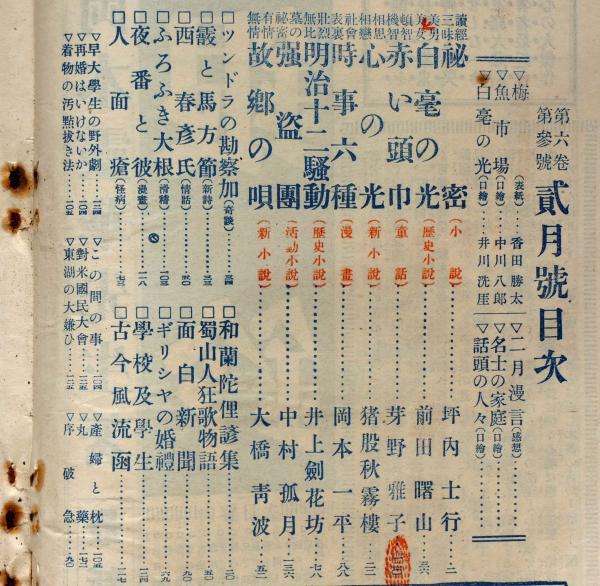 第六卷第參號 貳月號目次
▽梅(表紙)……香田勝太
▽魚市場(口繪)……中川八郎
▽白毫の光(口繪)……井川洗厓
▽二月漫言(感想)……
▽名士の家庭(口繪)……
▽話頭の人々(口繪)……
讀經三昧 祕密(小說)……坪內士行……二
美男美女 白毫の光(歷史小說)……前田曙山……
頓智機智 赤い頭巾(童話)……芽野雅子……
相思相戀 心の光(新小說)……猪股秋霧樓……
社會表裏 時事六種(漫畫)……岡本一平……八八
壯烈無比 明治十二騷動(歷史小說)……井上劍花坊……七八
墓の祕密 强盜團(活動小說)……中村孤月……一三六
有情無情 故鄉の唄(新小說)……大橋靑波……五二
□ツンドラの勘察加(奇談)……
□霞と馬方節(新詩)……
□西春彥氏(情話)……
□ふろふき大根(滑稽)……
□夜番と彼(漫畫)……二八
□人面瘡(怪病)……七三
□和蘭陀俚諺集……
□蜀山人狂歌物語……
□面白新聞……
□ギリシヤの婚禮……六九
□學校及學生……一三四
□古今風流函……一二七
▽早大學生の野外劇……
▽再婚はいけないか……
▽着物の汚點拔き法……一〇五
▽この間の事……一〇四
▽對米國民大會……
▽東湖の大嫌ひ……
▽產婦と枕……
▽丸藥……
▽序破急……九〇